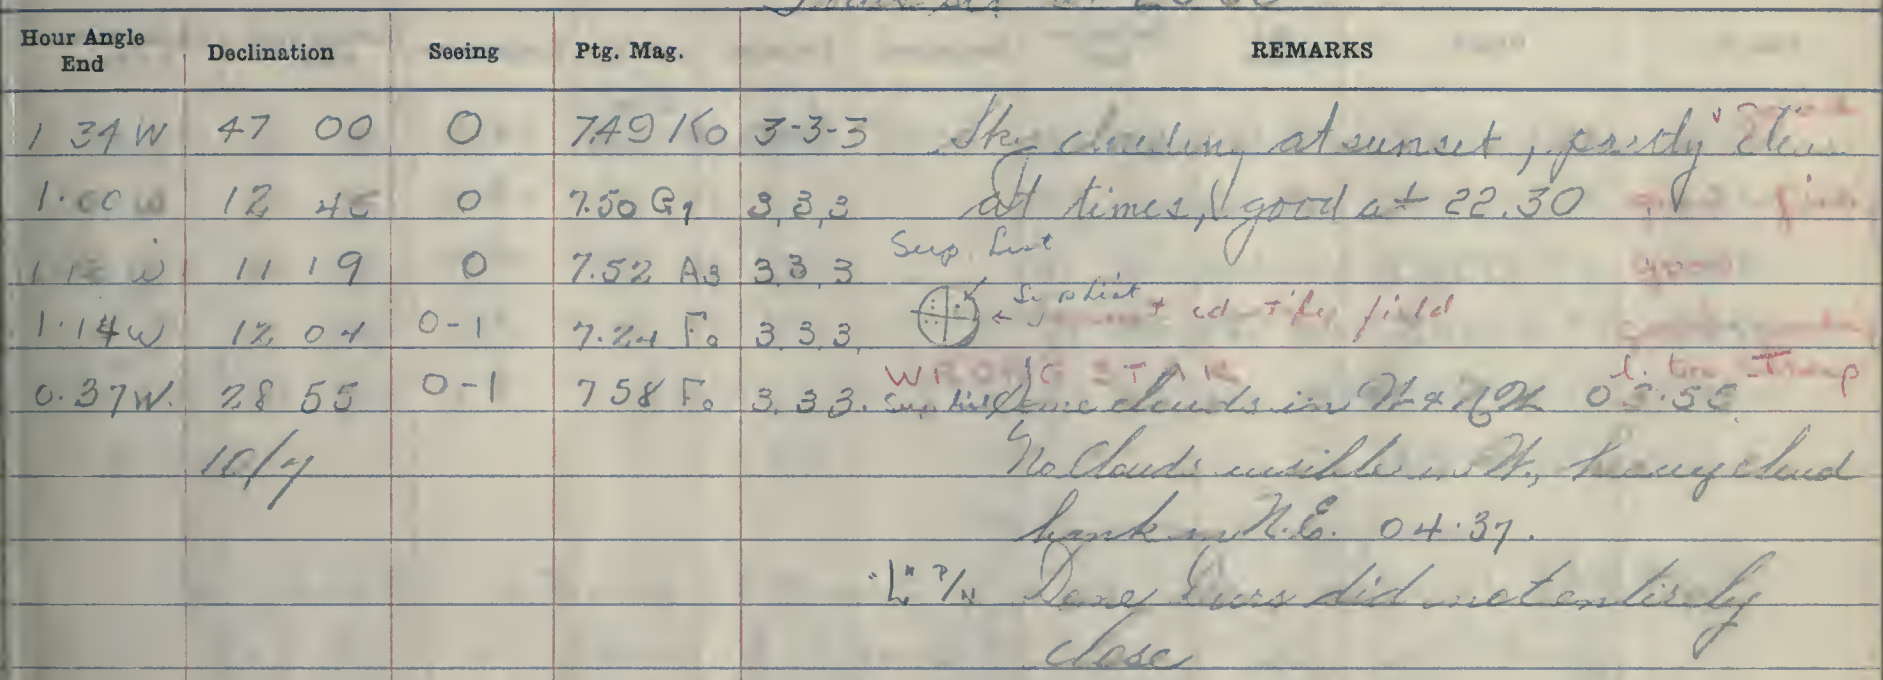 Hour Angle End Declination Seeing Ptg. Mag. REMARKS
1 34 W 47 00 0 7.49 K0 3-3-3 Sky clouding at sunset, partly clear
1.00 W 12 45 0 7.50 G9 3,3,3 at times, good at 22.30
W 11 19 0 7.52 A3 3,3,3 Sup. List
1.14 W 12 04 0-1 7.24 F0 3,3,3, Sup List ← identify field
WRONG STAR
0.37 W. 28 55 0-1 7 58 F0 3,3 3. Sup. List Some clouds in
10/7 No Clouds visible in W, heavy cloud
bank in N.E. 04.37.
"L" P/N Dome Doors did not entirely
close